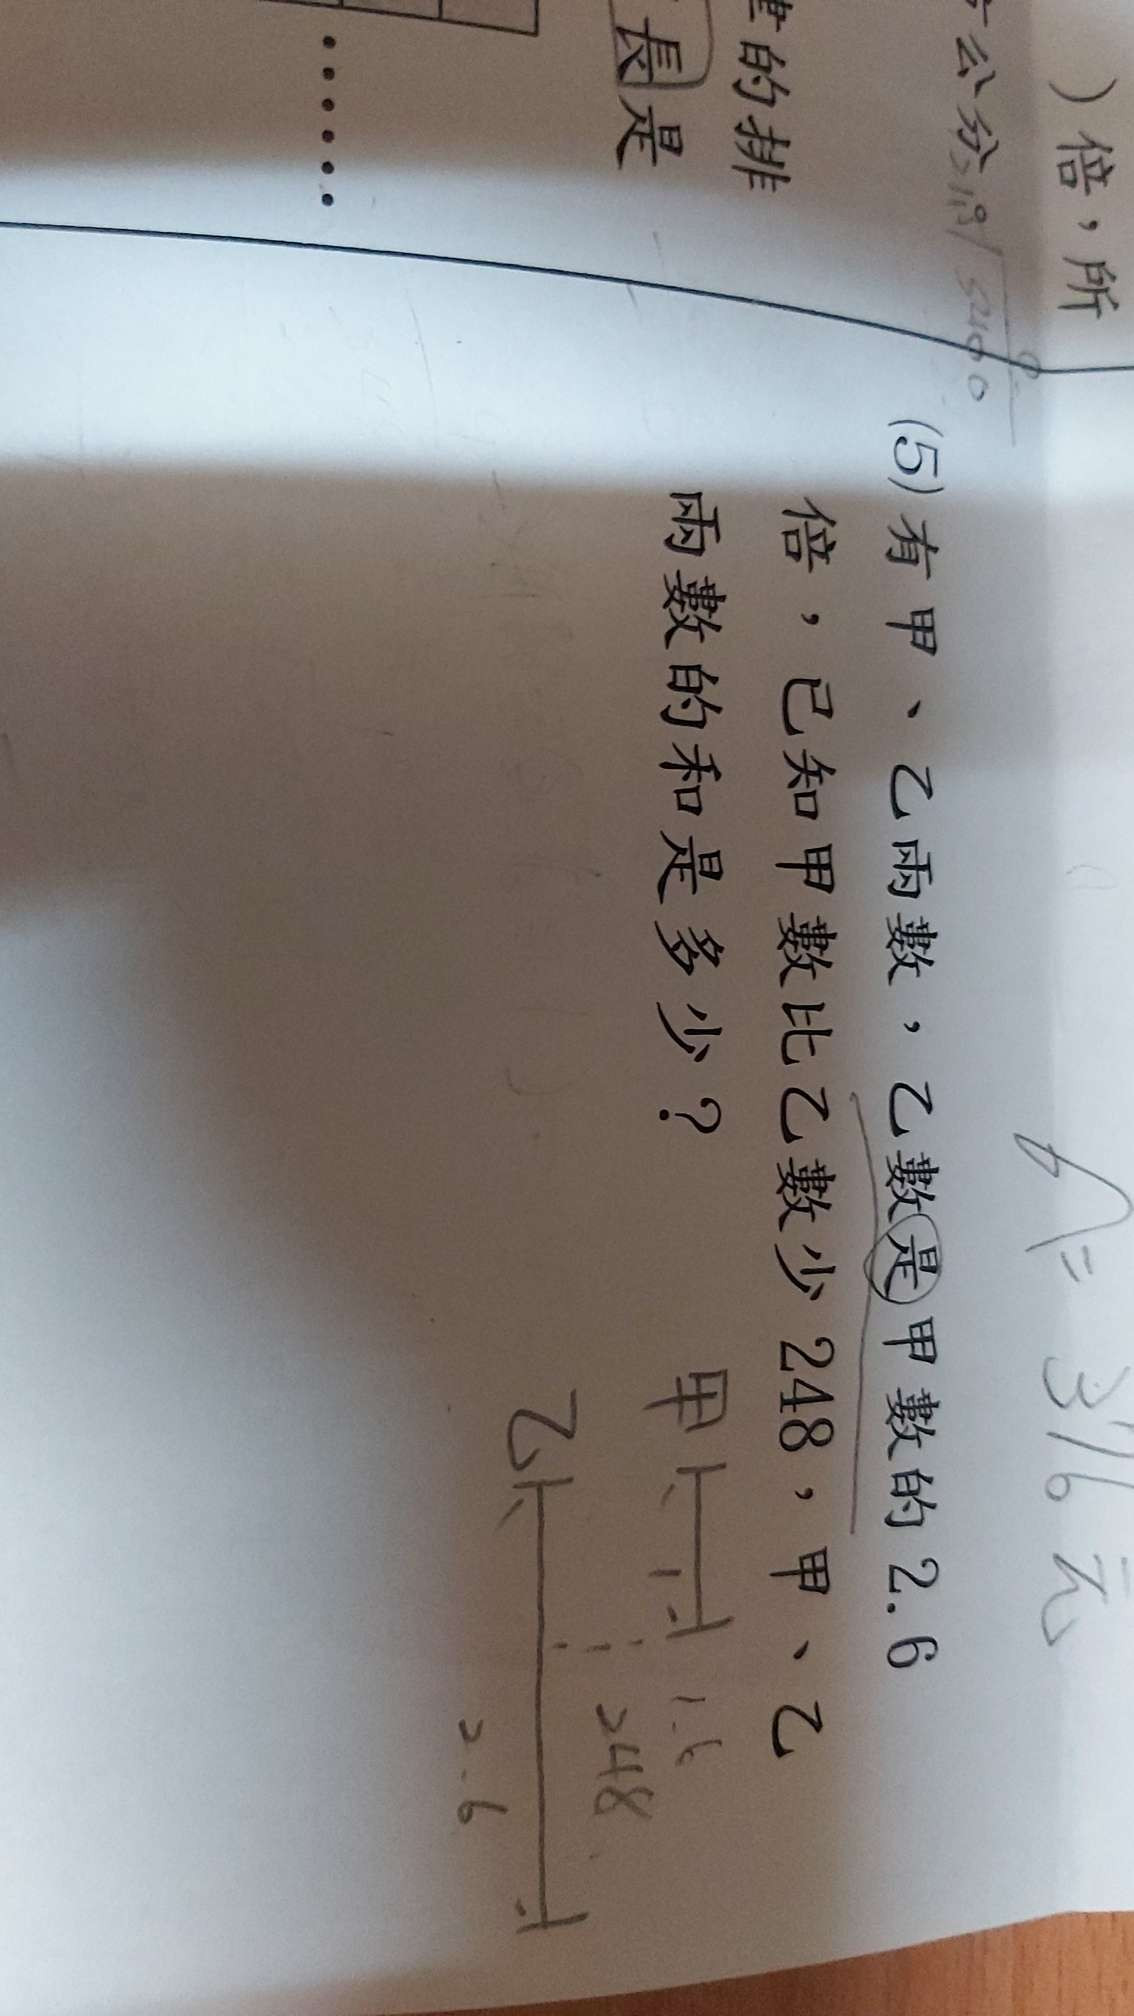 )倍,所
公分
1.8 5400
建的排
長是
……
A=316元
(5)有甲、乙兩數,乙數是甲數的2.6
倍,已知甲數比乙數少248,甲、乙
兩數的和是多少?
甲 1 1.6
248
乙 2.6